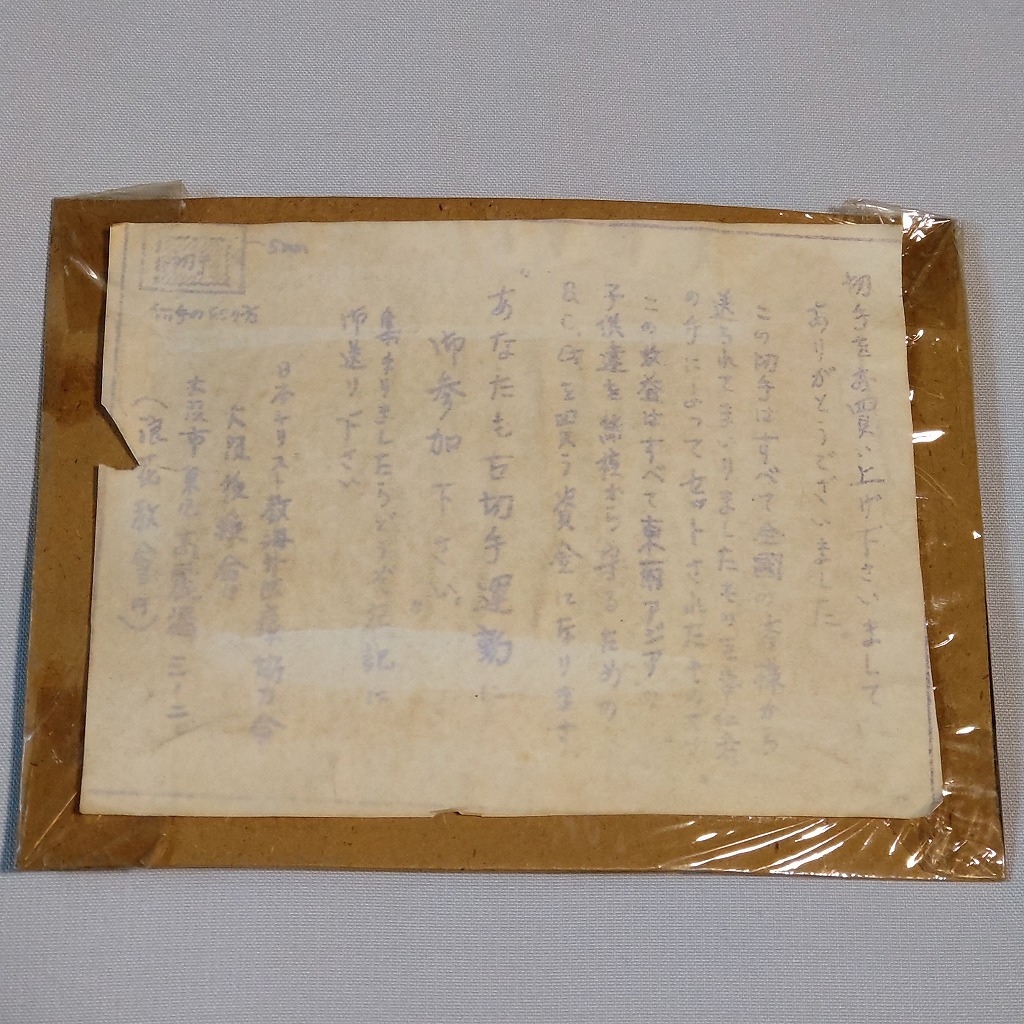 切手をお買い上げ下さいまして
ありがとうございました。
この切手はすべて全国の皆様から
送られてまいりましたものを
の手によってセットされたもので
この収益はすべて東南アジアの
子供達を結核から守るための
B.C.Gを買う資金になります
"あなたも古切手運動に
御参加下さい"
集まりましたらどうぞ左記に
御送り下さい
日本キリスト教海外医療協力会
大阪後援会
大阪市東区高麗橋二ー二
(浪花教会内)
切手
5mm
切手の切り方